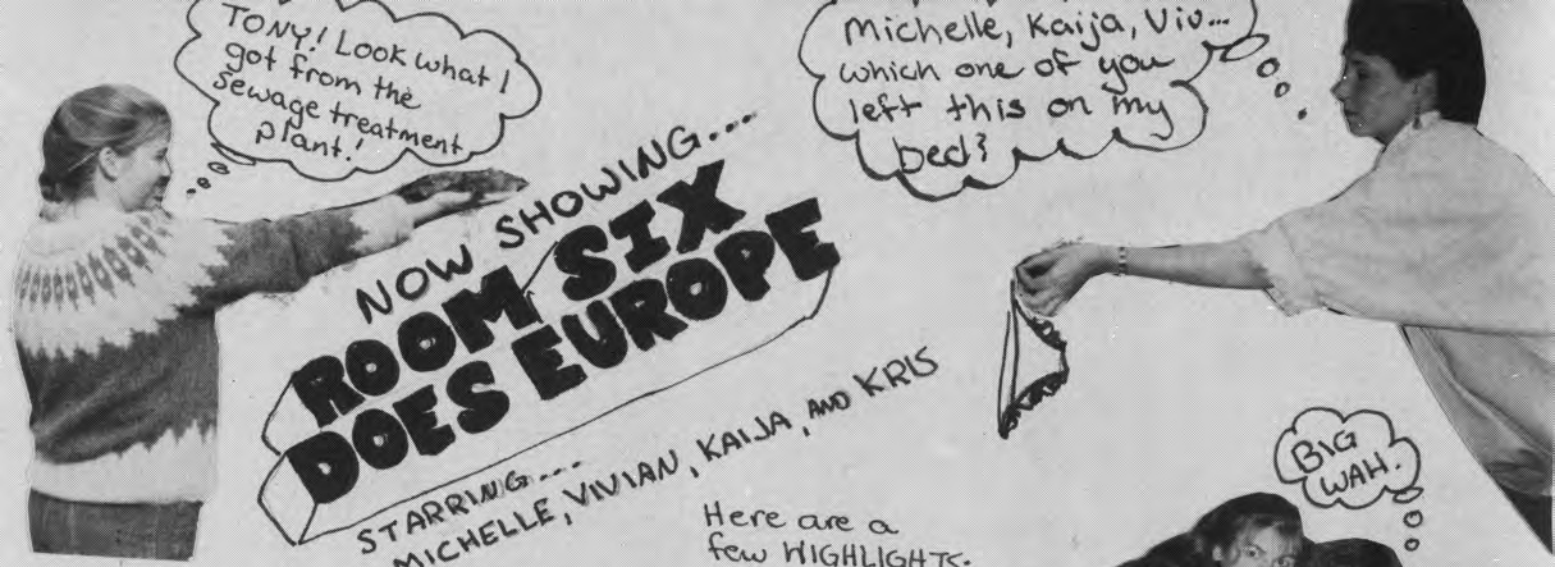 TONY! Look what I
got from the
sewage treatment
plant!
Michelle, Kaija, Viv...
which one of you
left this on my
bed?
NOW SHOWING...
ROOM SIX
DOES EUROPE
STARRING...
MICHELLE, VIVIAN, KAIJA, AND KRIS
BIG
WAH.
Here are a
few HIGHLIGHTS.